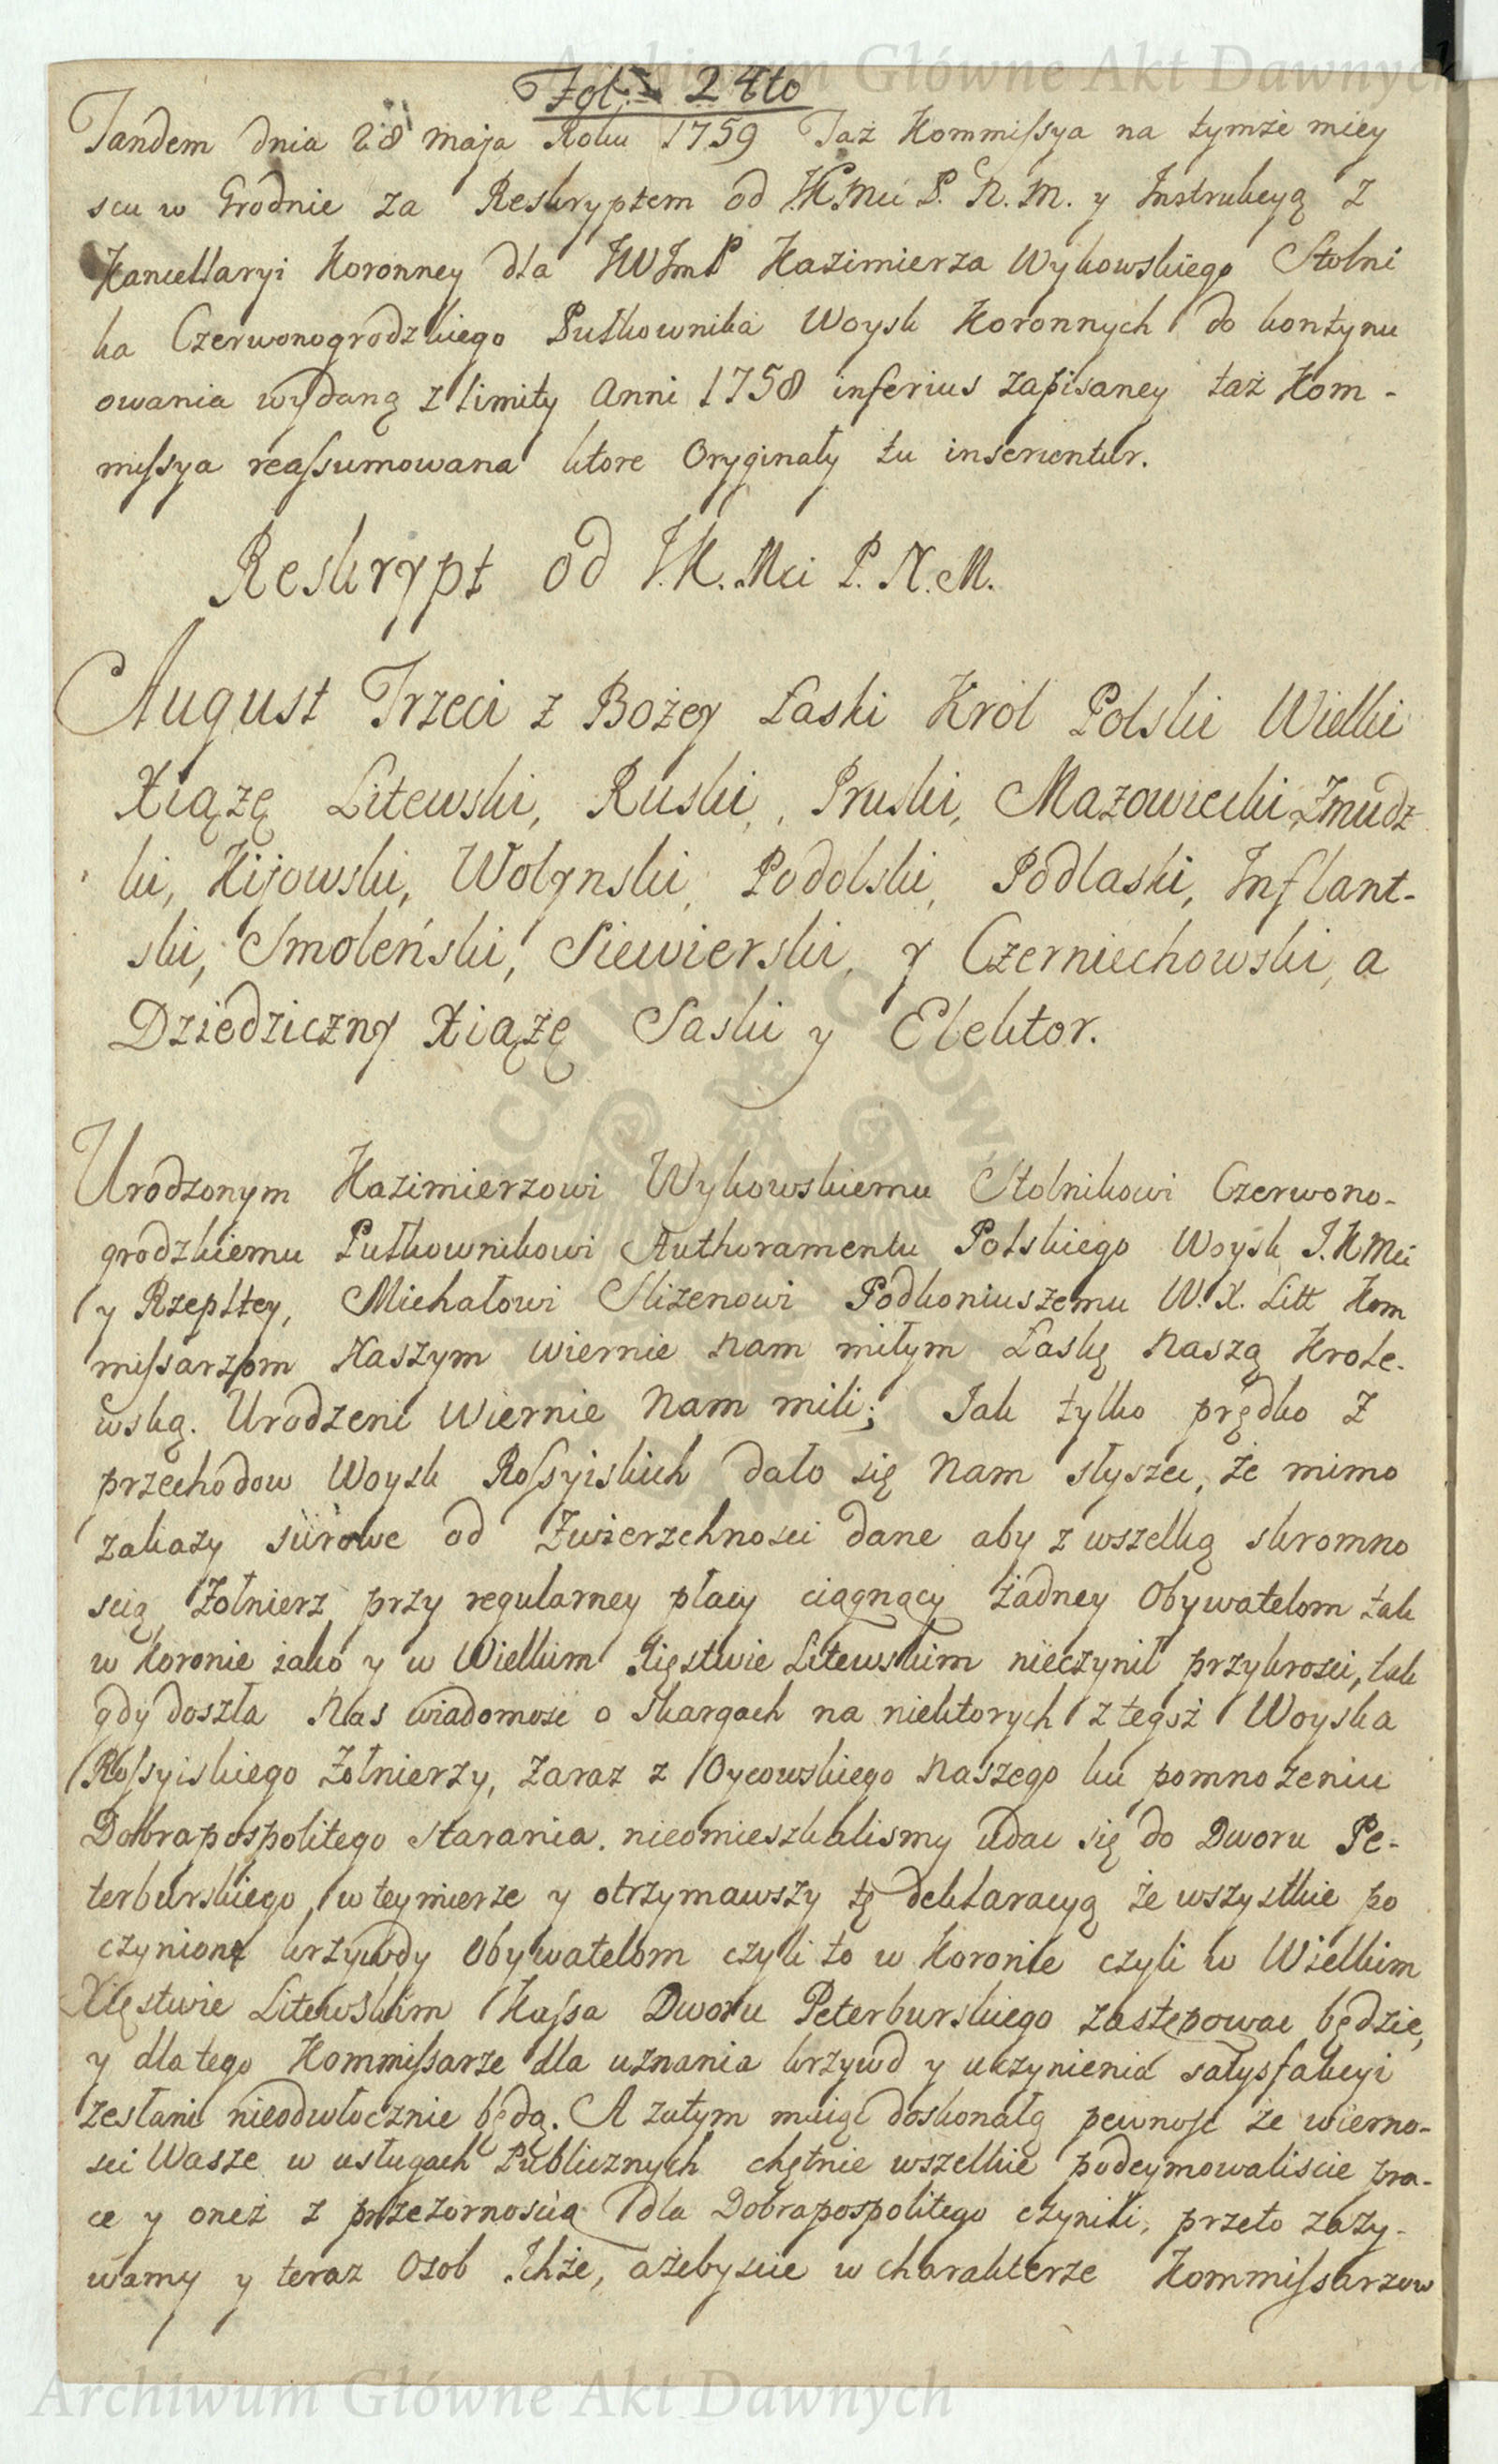 Archiwum Główne Akt Dawnych
Fol: 24to
Tandem dnia 28 Maja Roku 1759 Taż Kommissya na tymże miey
scu w Grodnie za Reskryptem od J.K.Mci P. N. M. y Instrukcyą z
Kancellaryi Koronney dla JWJmP Kazimierza Wykowskiego Stolni
ka Czerwonogrodzkiego Pułkownika Woysk Koronnych do kontynu
owania wydaną z limity Anni 1758 inferius zapisaney taż Kom-
missya reassumowana ktore Oryginały tu inserientur.
Reskrypt od J.K.Mci P.N.M.
August Trzeci z Bożey Łaski Krol Polski Wielki
Xiążę Litewski, Ruski, Pruski, Mazowiecki Zmudz
ki, Kijowski, Wołynski, Podolski, Podlaski, Inflant-
ski, Smoleński, Siewierski, y Czerniechowski, a
Dziedziczny Xiążę Saski y Elektor.
Urodzonym Kazimierzowi Wykowskiemu Stolnikowi Czerwono-
grodzkiemu Pułkownikowi Authoramentu Polskiego Woysk J.K.Mci
y Rzepltey, Michałowi Slizenowi Podkoniuszemu W.X. Litt Kom
missarzom Naszym wiernie nam miłym Łaskę Naszą Krole-
wską. Urodzeni Wiernie Nam mili; Jak tylko prędko z
przechodow Woysk Rossyiskich dało się Nam słyszec, że mimo
zakazy surowe od Zwierzchnosci dane aby z wszelką skromno
scią Żołnierz przy regularney płacy ciągnący żadney Obywatelom tak
w Koronie iako y w Wielkim Xięstwie Litewskim nieczynił przykrosci, tak
gdy doszła Nas wiadomość o skargach na niektorych z tegoż Woyska
Rossyiskiego Żołnierzy, zaraz z Oycowskiego Naszego ku pomnożeniu
Dobrapospolitego starania nieomieszkalismy udac się do Dworu Pe-
terburskiego, w teymierze y otrzymawszy tę deklaracyą że wszystkie po
czynione krzywdy Obywatelom czyli to w Koronie czyli w Wielkim
Xięstwie Litewskim Kassa Dworu Peterburskiego zastępowac będzie,
y dla tego Kommissarze dla uznania krzywd y uczynienia satysfakcyi
zesłani nieodwłocznie będą. A zatym maiąc doskonałą pewnosc że wierno-
sci Wasze w usługach Publicznych chętnie wszelkie podeymowaliscie pra-
ce y oneż z przezornoscią dla Dobrapospolitego czynili, przeto zazy-
wamy y teraz Osob Ichże, ażebyscie w charakterze Kommissarzow
Archiwum Główne Akt Dawnych